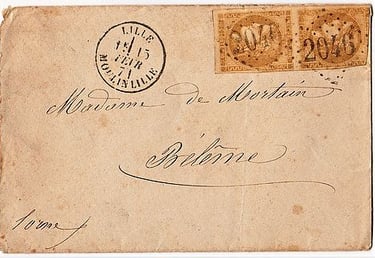 LILLE
15
FEVR
71
MOULINLILLE
2046
2046
Madame de Mortain
Bélême
orne